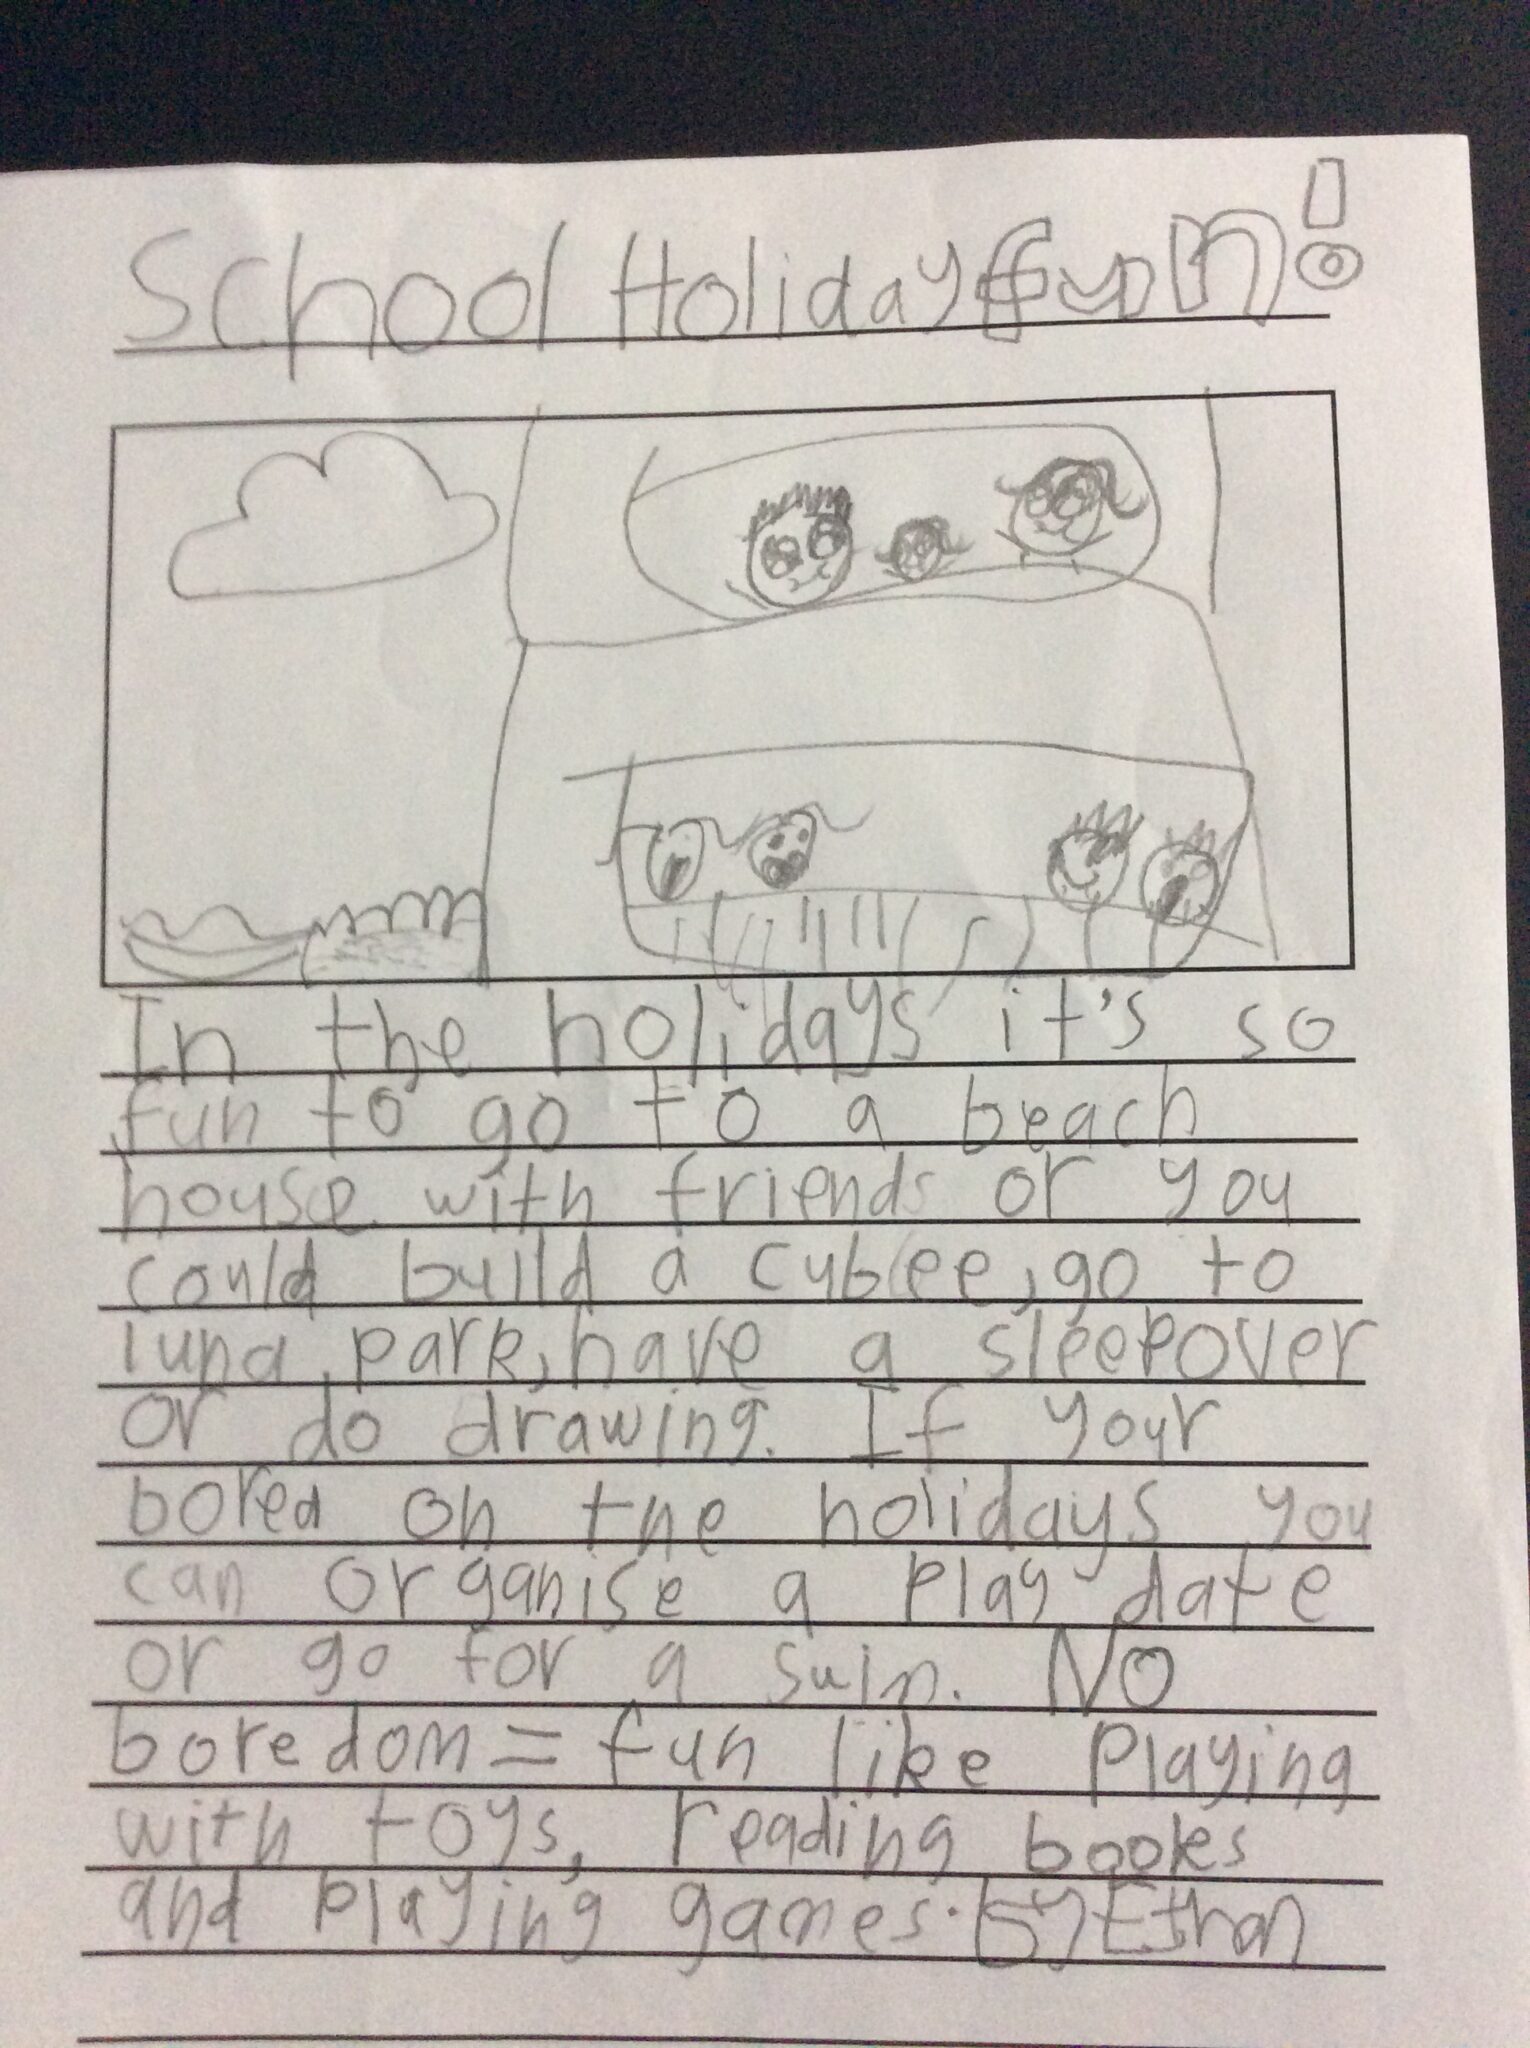 School Holiday fun!
In the holidays it's so
fun to go to a beach
house with friends or you
could build a cublee, go to
luna park, have a sleepover
or do drawing. If your
bored on the holidays you
can organise a play date
or go for a swim. No
boredom = fun like playing
with toys, reading books
and playing games. by Ethan